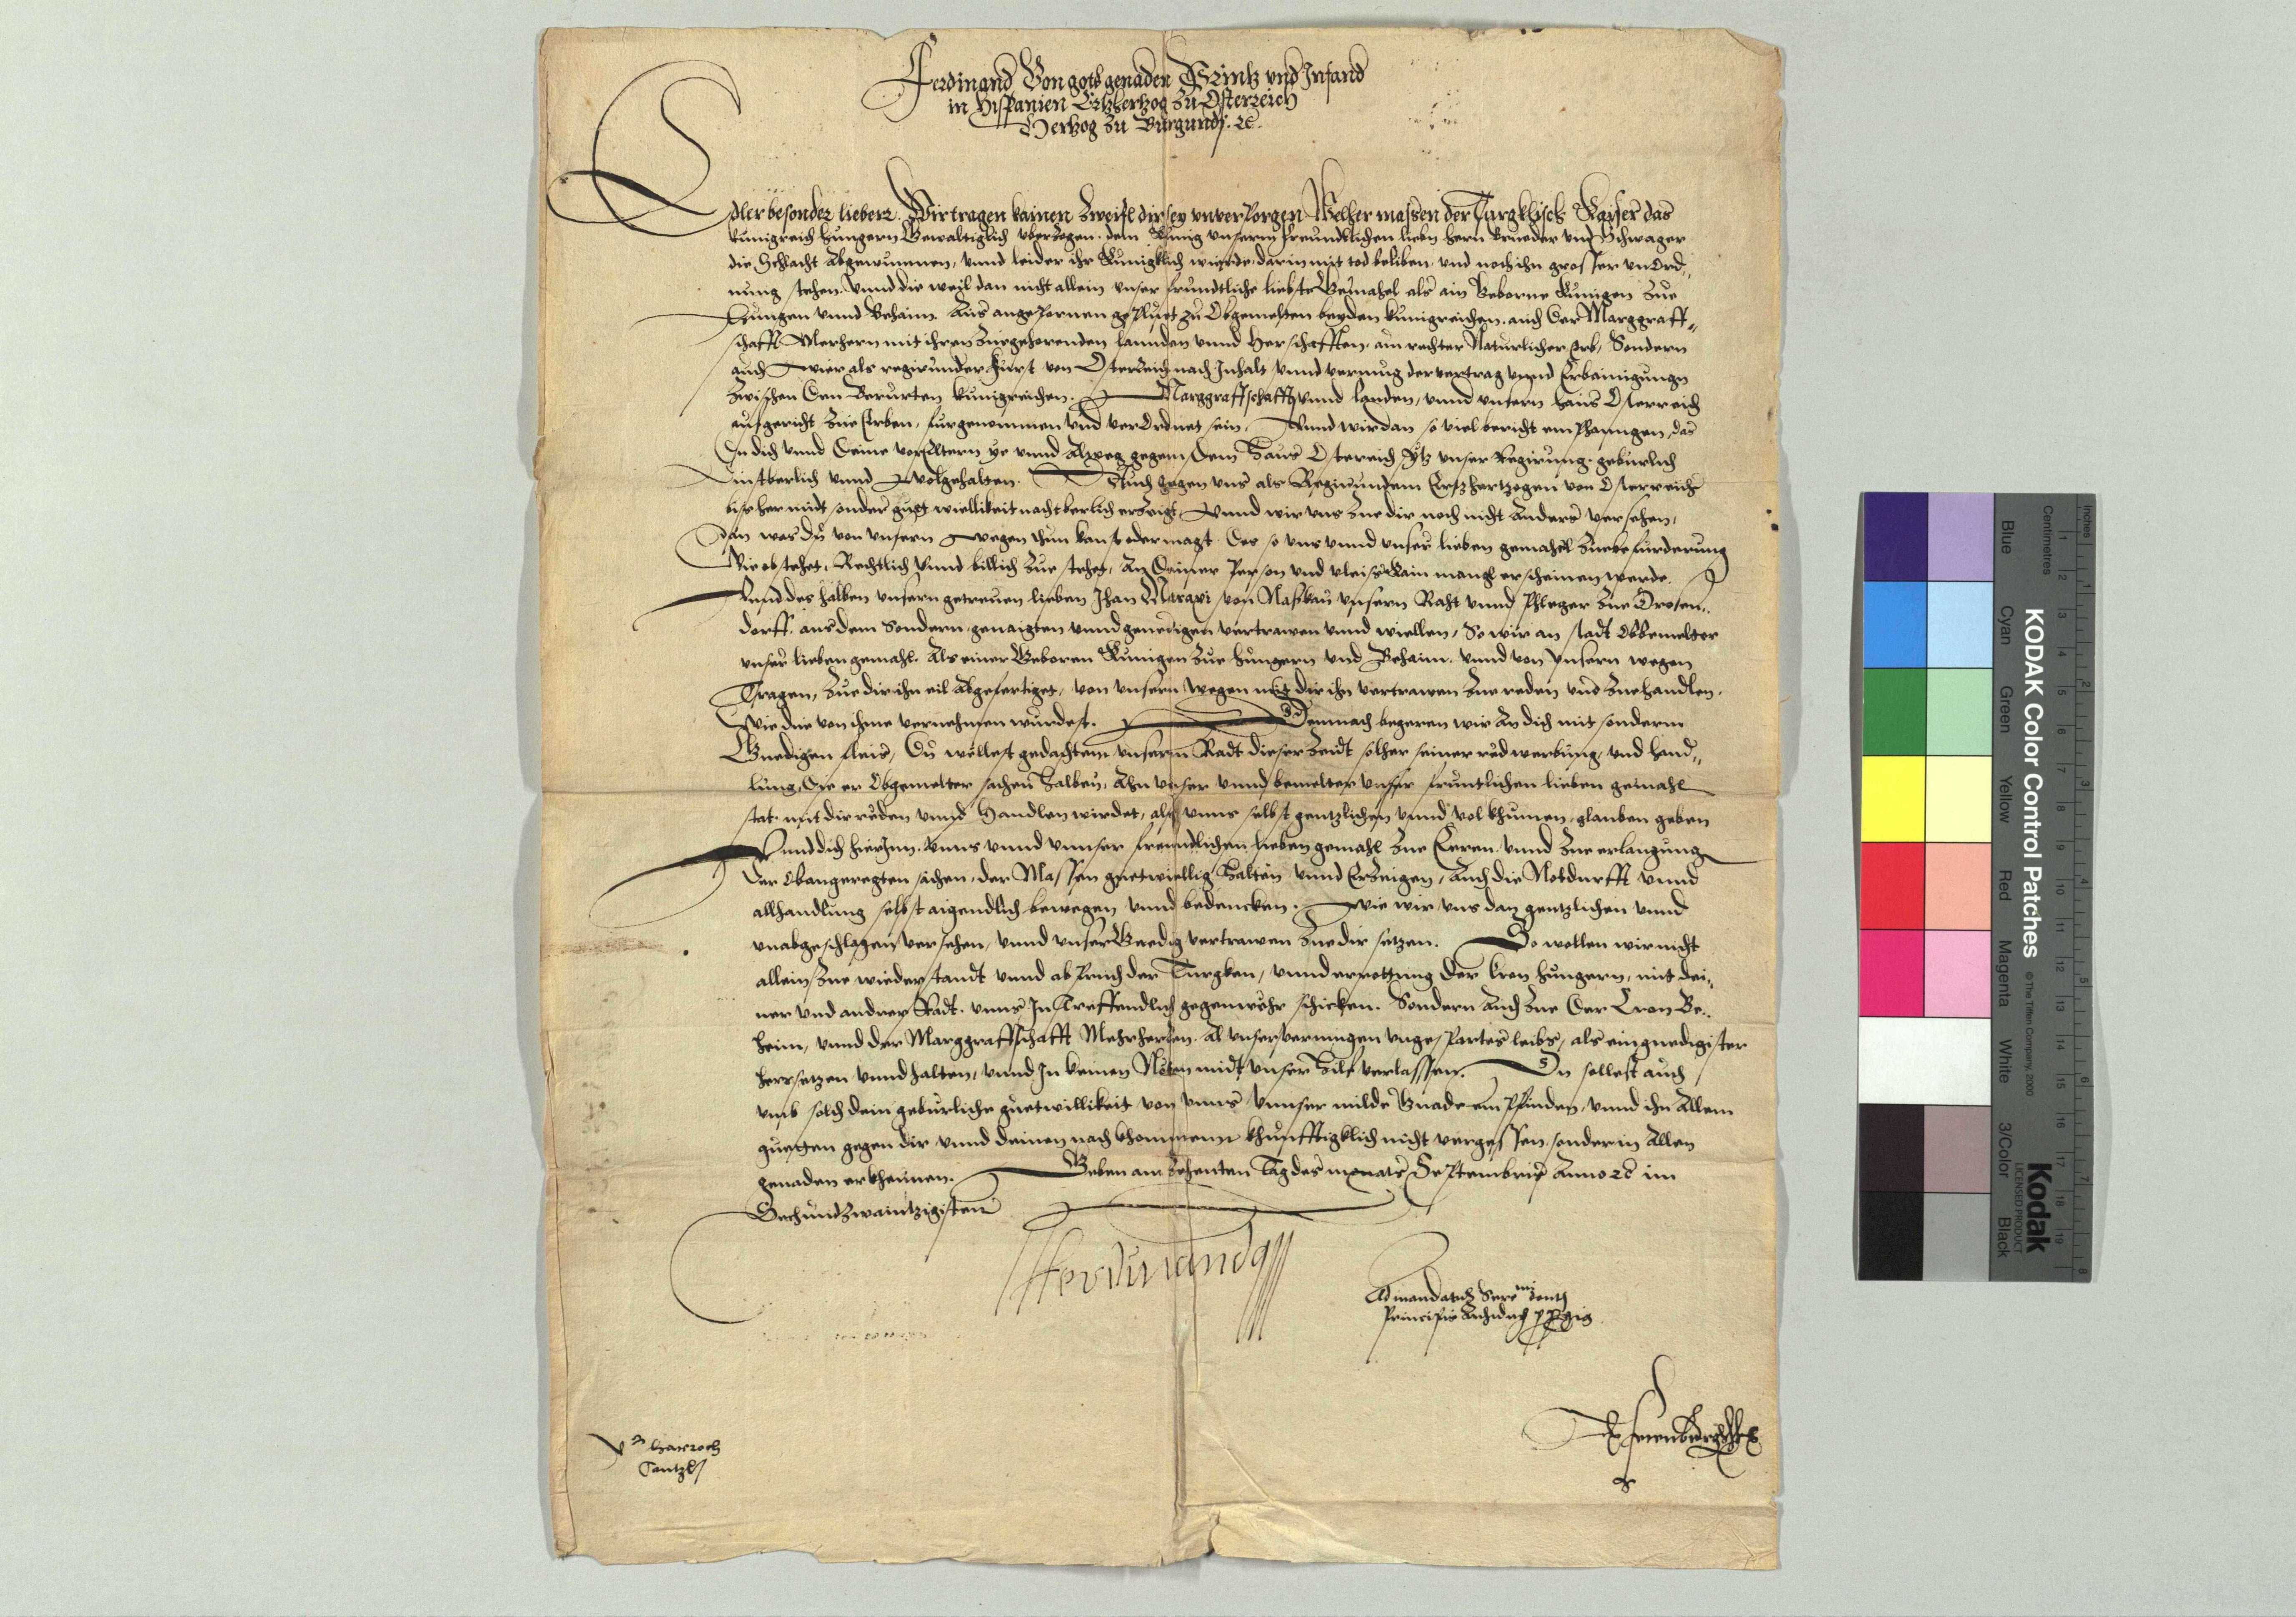 Ferdinand Von gots genaden Printz und Infand
in Hispanien Ertzhertzog zu Osterreich
Hertzog zu Burgundj. ꝛc.
Edler besonder lieber. Wir tragen kainen zweifl dir sey unverporgen Welher massen der Turgkhisch Kayser das
kunigreich hungern Gewaltiglich uberzogen. dem Kunig unserm freundtlichen liebn hern brueder und Schwager
die Schlacht Abgewunnen, unnd leider ihr Kunigklich wierde darin mit tod beliben. und noch ihn grosser un Ord„
nung stehen. Unnd die weil dan nicht allein unser frundtliche liebste Gemahel als ain Geborne Kunigen zue
Hungern unnd Behaim. Aus angepornen gepluet zu Obgemelten beyden kunigreichen. auch Der Marggraff„
schafft Merhern mit ihren zuegehorenden lannden unnd Herschafften. ain rechter Naturlicher Erb, Sondern
auch wier als regirunder furst von Osterreich nach Inhalt unnd vermug der vertrag unnd Erbainigungn
zwischen Den Berurten kunigreichen. Marggraffschafft unnd landen, unnd unsern haus Osterreich
aufgericht zue Erben, furgenommen und verOrdnet sein. Unnd wir dan so viel bericht emphanngen, das
Du dich unnd Deine vorElltern ye unnd Alweg gegem dem Haus Ostereich Itz unser Regirung. geburlich
unnd wolgehalten. Auch gegen uns als Regirundem Ertzhertzogen von Osterreich
bis her midt sonder guet wiellikeit nachtberlich erzeigt, Unnd wir uns zue dir noch nicht Anders versehen,
Dan was du von unsern wegen thun kanst oder magt Des so uns unnd unser lieben gemahel zue befurderung
Wie obstehet, Rechtlich unnd billich zue stehet, An Deiner Person und vleis kain mangl erscheinen werde.
Unnd des halben unsern getreuen lieben Jhan Maraxi von Naßkau unsern Raht unnd Phleger zue Drosen„
dorff. aus dem Sondern genaigten unnd genedigen vertrawen unnd wiellen, So wir an stadt Obbemelter
unser lieben gemahl. Als einer Geboren Kunigen zue hungern und Behaim. unnd von unsern wegen
Tragen, zue dir ihn eil Abgefertiget, von unsern wegen mit dir ihn vertrawen zue reden und zue handlen.
Wie due von ihme vernehmen wurdest. Demnach begeren wir An dich mit sonderm
Gnedigen fleis, Du wellest gedachtem unserm Radt dieser Zeidt solher seiner red werbung, und hand„
lung, Die er Obgemelter sachen Halben, Ahn unser unnd bemelter unser fruntlichen lieben gemahl
stat. mit dir reden unnd Handlen wirdet, als unns selbst gentzlichen unnd vol khumen, glauben geben
Unnd dich hierInn. unns unnd unnser freundlichen lieben gemahl zue Eeren. unnd zue erlangung
Der Obangeregten sachen, der Massen guetwiellig Halten unnd Erzeigen, Auch die Notdurfft unnd
allhandlung selbst aigendlich bewegen unnd bedencken. wie wir uns dan gentzlichen unnd
unabgeschlagen versehen, unnd unser Gnedig vertrawen zue dir setzen. So wellen wir nicht
allein zue wiederstandt unnd abpruch der Turgken, unnd errettung Der kron hungern, mit dei„
ner und andrer Radt. unns In treffendlich gegenwehr schicken. Sondern Auch zue Der Cron Be„
heim, unnd der Marggraffschafft Mehrhern. Al unser vermugen ungespartes leibs, als ein gnedigister
herr setzen unnd halten, unnd In keinen Nöten midt unser Hilf verlasssen. Du sollest auch
umb solch dein geburliche guetwillikeit von unns unnser milde Gnade emphinden, unnd ihn Allem
guetten gegen dir unnd deinen nach khommenn khunfftigklich nicht vergessen, sonder in Allen
genaden erkhennen. Geben am Zehenten Tag des monats Septembris Anno ꝛc im
Sechundzwaintzigisten
Ferdinandus
Ad mandatum Sere^mi domi
Principis Archiduc pprium
v^n Harrach
Cantzl